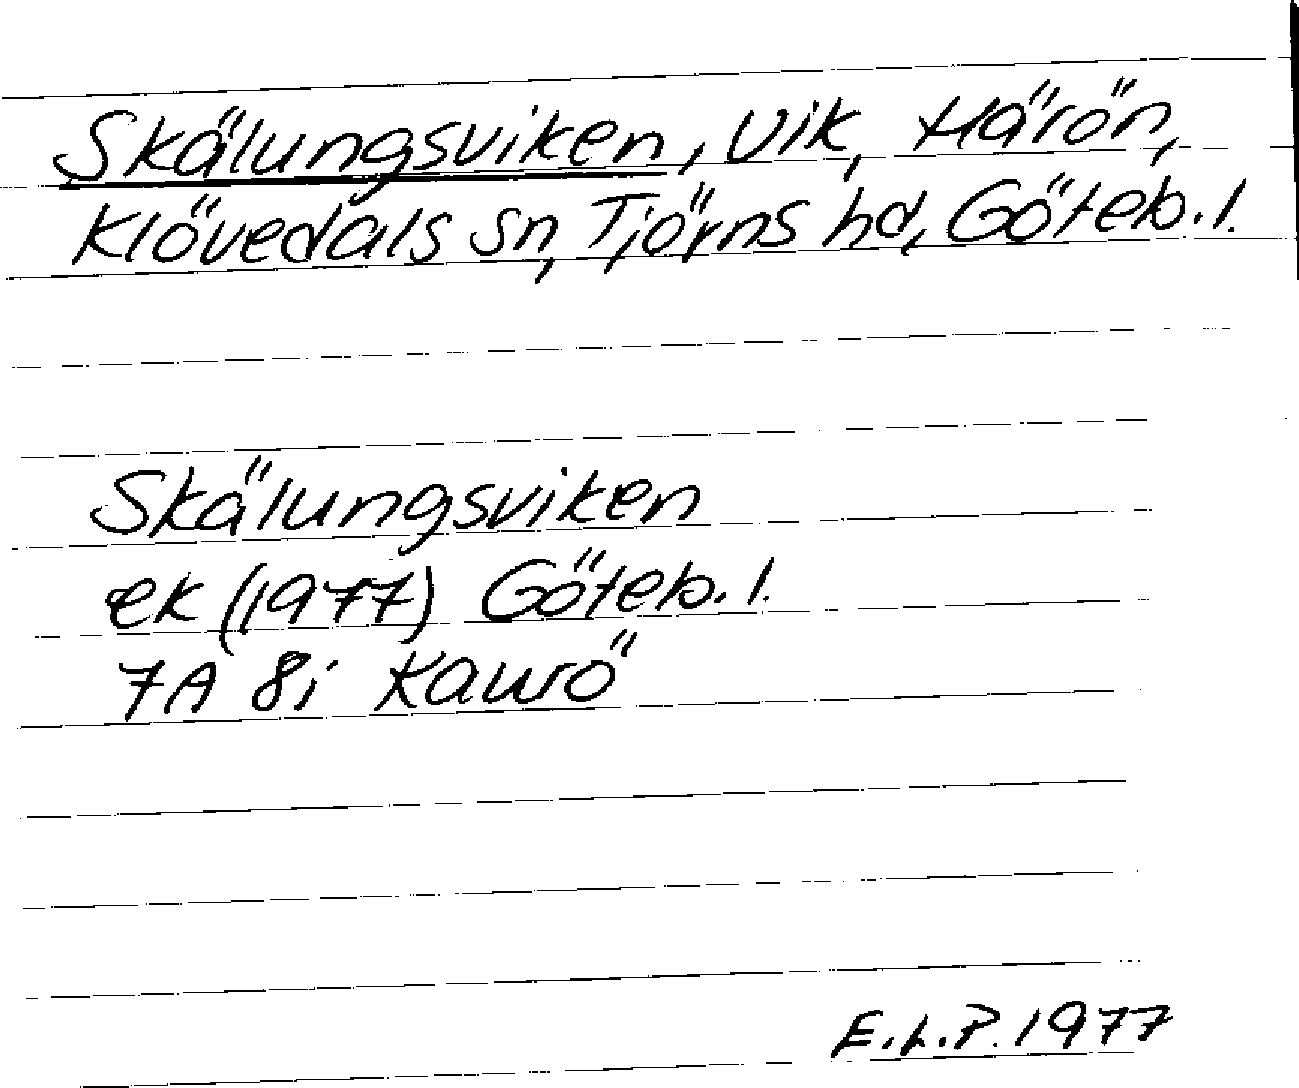 Skälungsviken, vik, Härön,
Klövedals sn, Tjörns hd, Göteb. l.
Skälungsviken
ek (1977) Göteb. l.
7A 8i Käwrö
E.L.P. 1977